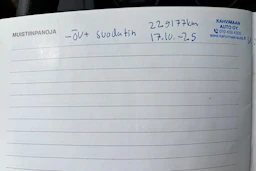 MUISTIINPANOJA
-öv+ suodatin 229177km
17.10.-25
AUTO OY